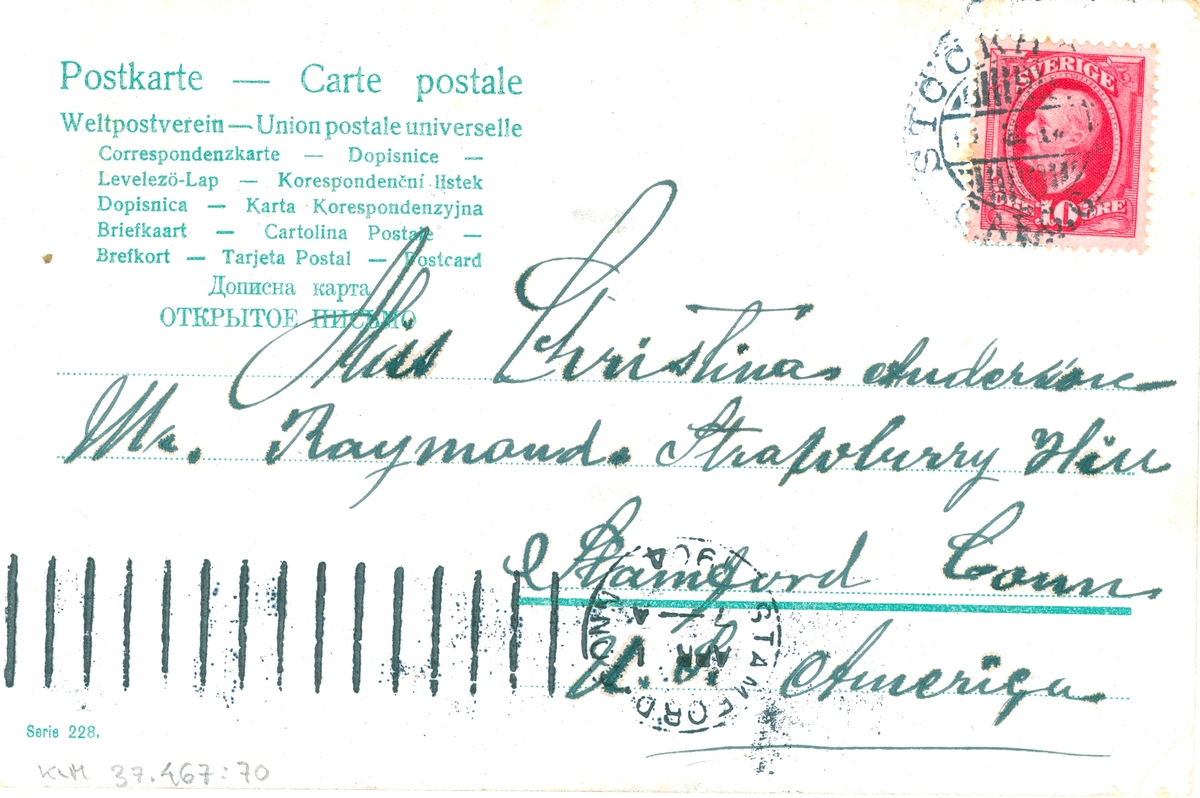 Postkarte — Carte postale
Weltpostverein — Union postale universelle
Correspondenzkarte — Dopisnice —
Levelezö-Lap — Korespondenční listek
Dopisnica — Karta Korespondenzyjna
Briefkaart — Cartolina Postale —
Brefkort — Tarjeta Postal — Postcard
Дописна карта
ОТКРЫТОЕ ПИСЬМО
SVERIGE
10 ÖRE
Miss Christina Anderson
Mr. Raymond. Strapvberry Hill
Stamford Conn.
U.S. Ameriga.
STAMFORD CONN.
APR
Serie 228.
KLM 37.467:70